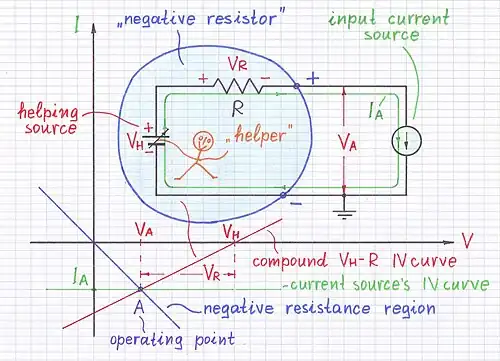 I
„negative resistor"
input current
source
VR
+ -
+
R
helping
source
+
VH
-
„helper"
VA
IA
-
VA
VH
V
VR
compound VH-R IV curve
IA
current source's IV curve
A
negative resistance region
operating point